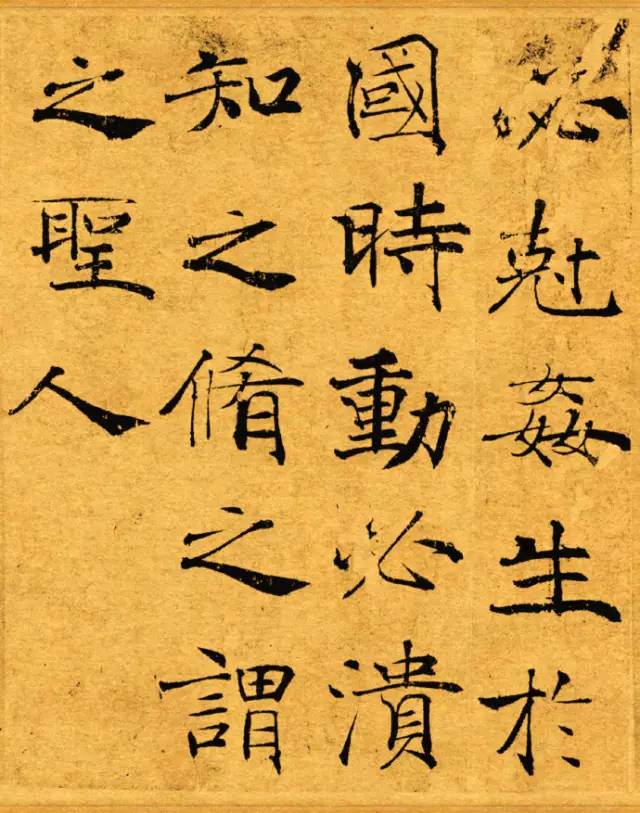 必尅姦生於
國時動必潰
知之脩之謂
之聖人